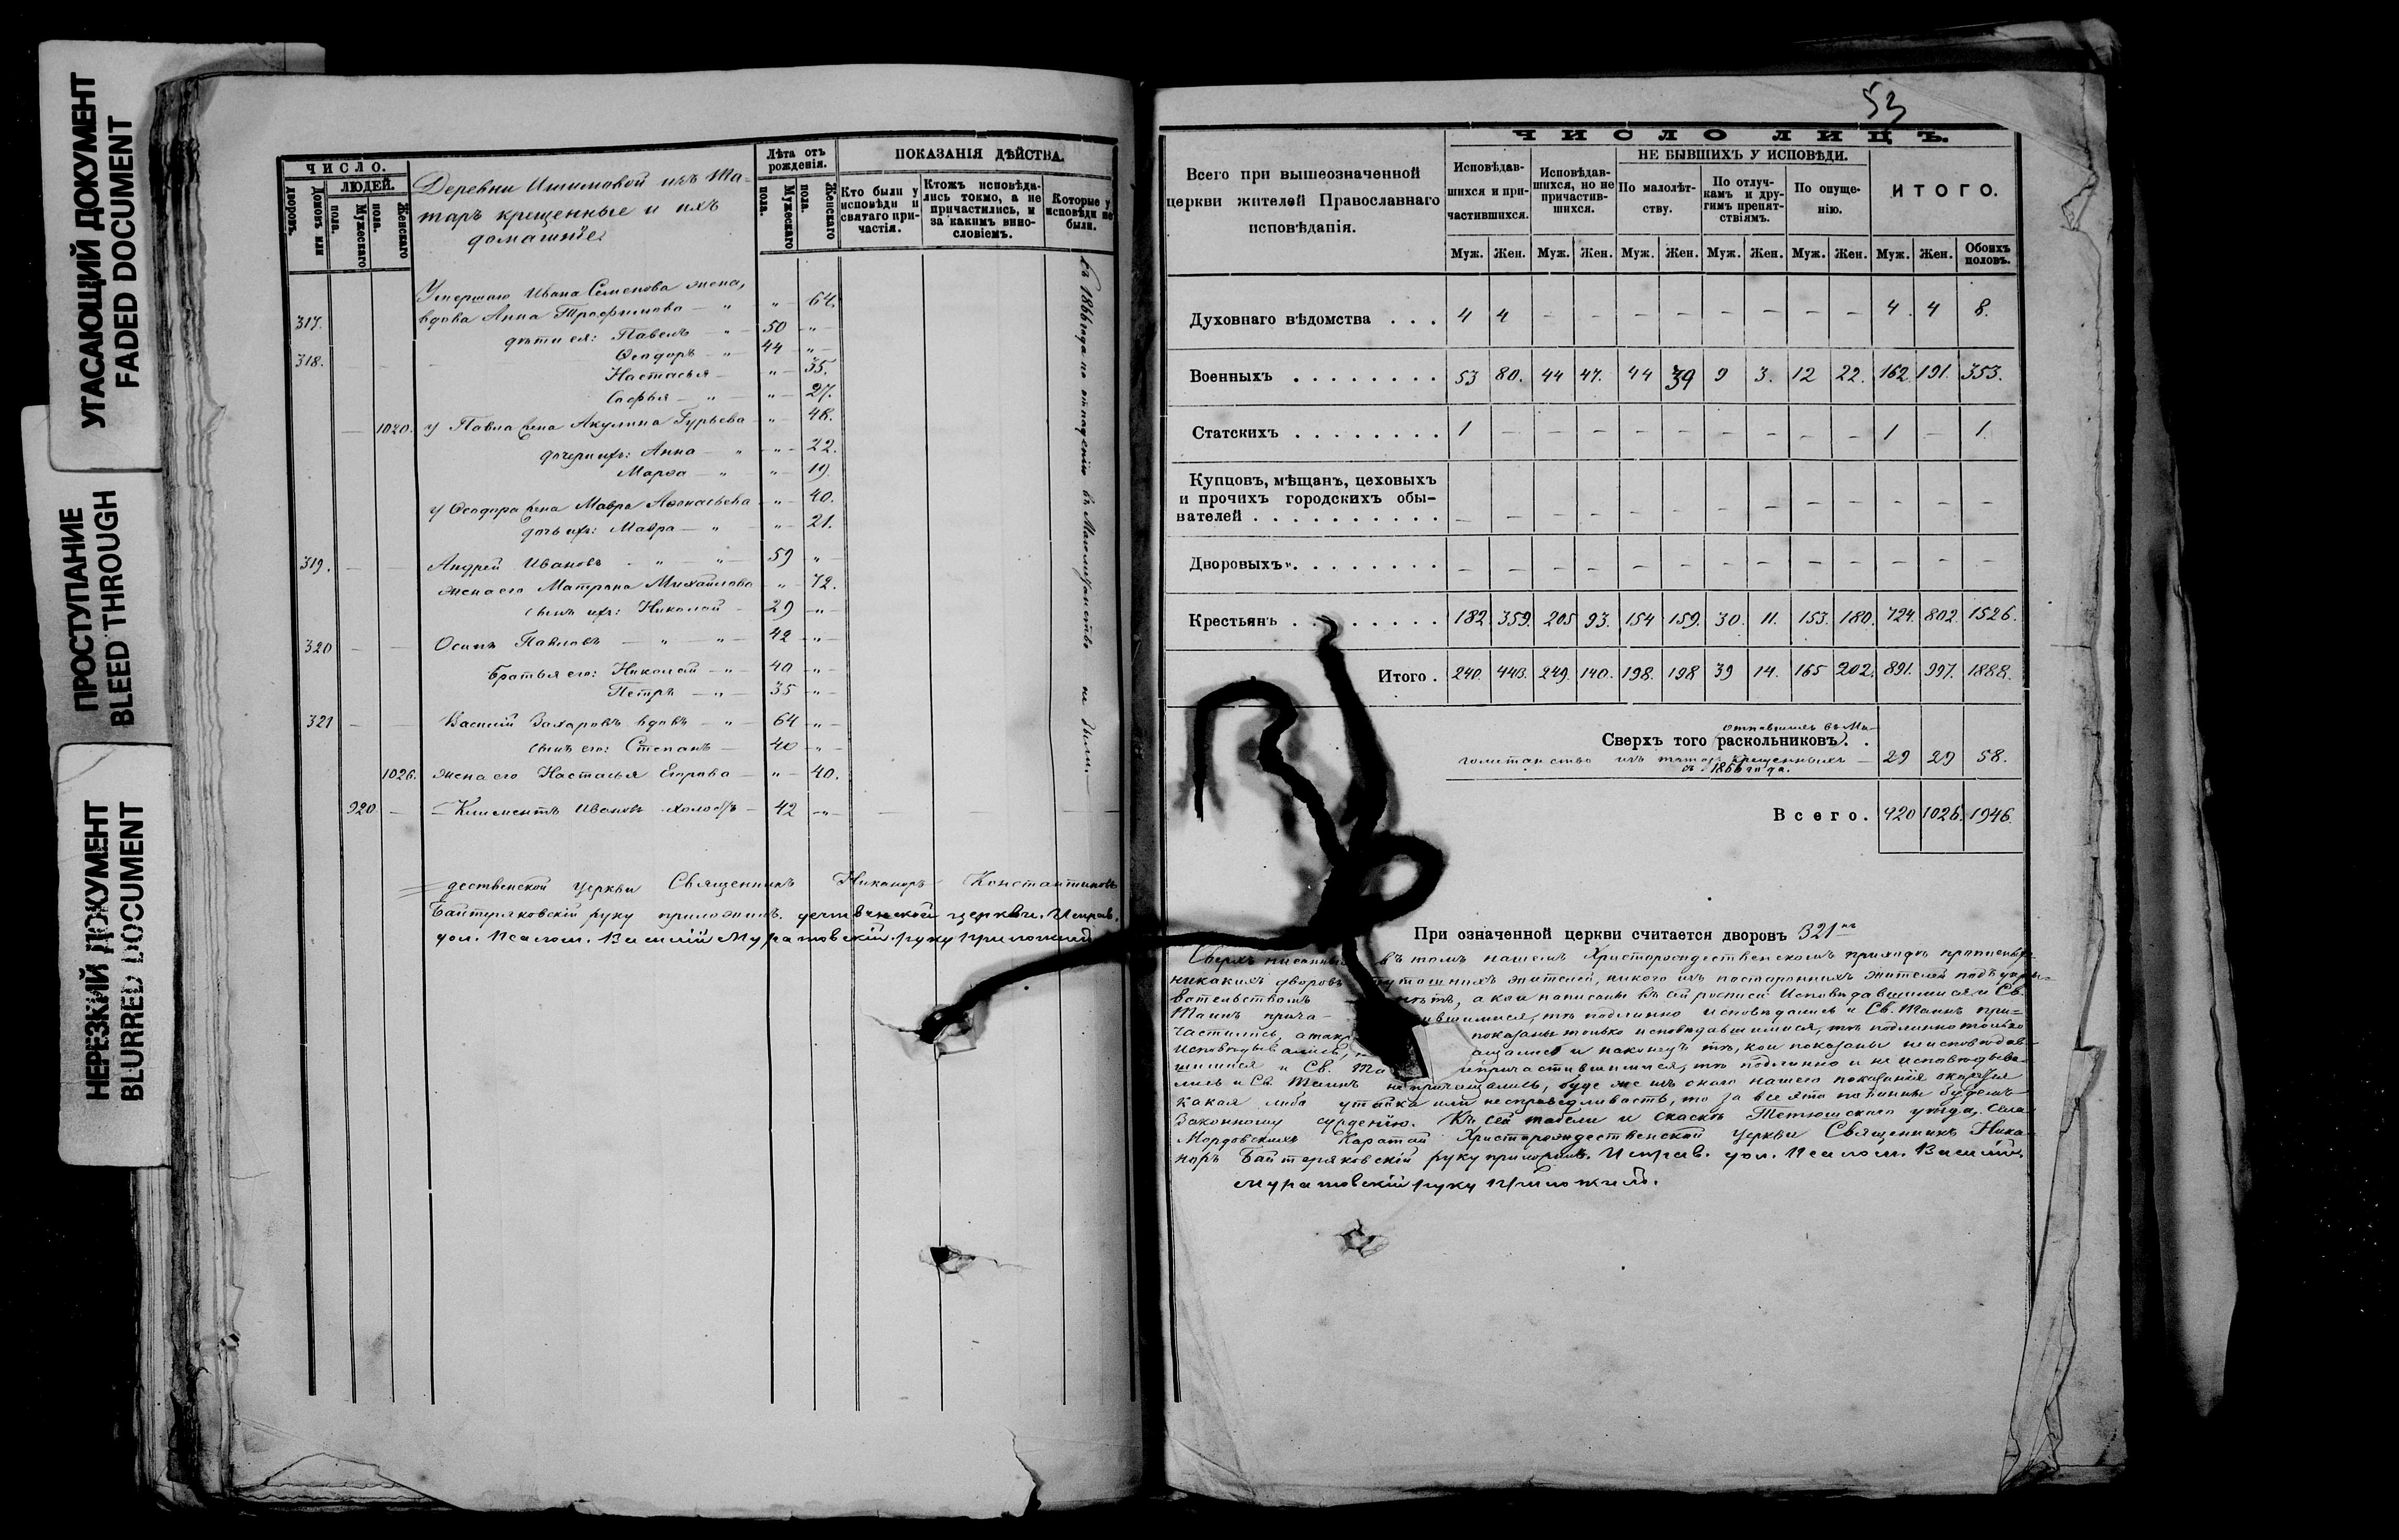 УГАСАЮЩИЙ ДОКУМЕНТ
FADED DOCUMENT
ПРОСТУПАНИЕ
BLEED THROUGH
НЕРЕЗКИЙ ДОКУМЕНТ
BLURRED DOCUMENT
ЧИСЛО.
ЛЮДЕЙ.
Домовъ или дворовъ.
Мужескаго пола.
Женскаго пола.
Деревни Ишимовой изъ Та-
таръ крещенные и ихъ
домашніе
Лѣта отъ рожденія.
Мужескаго пола.
Женскаго пола.
ПОКАЗАНІЯ ДѢЙСТВА.
Кто были у исповѣди и святаго при- частія.
Ктожъ исповѣда- лись токмо, а не причастились, и за какимъ вино- словіемъ.
Которые у исповѣди не были.
Умершаго Ивана Семенова жена,
317. вдова Анна Трофимова — " " 64.
дѣти ея: Павелъ — " 50 "
318. Ѳеодоръ — " 44 "
Настасья — " 35.
Софья — " " 27.
1020. у Павла жена Акулина Гурьева " 48.
дочери ихъ: Анна — " " 22.
Марѳа — " " 19.
у Ѳеодора жена Мавра Аѳонасьева " 40.
дочь ихъ: Мавра — " " 21.
319. Андрей Ивановъ " " 59 "
жена его Матрона Михайлова " 72.
сынъ ихъ: Николай 29 "
320 Осипъ Павловъ — " " 42 "
Братья его: Николай — " 40 "
Петръ — " 35 "
321 Василій Захаровъ вдовъ — " 64 "
сынъ его: Степанъ — 40 "
1026. жена его Настасья Егорова — " 40.
920 — Климентъ Ивановъ холостъ — 42 "
съ 1866 года по отпаденію въ Магометанство не были.
дественской церкви Священникъ Никаноръ Константиновъ
Байтеряковскій руку приложилъ. дественской церкви. Исправ.
дол. Псалом. Василій Муратовскій руку приложилъ
53
ЧИСЛО ЛИЦЪ.
Всего при вышеозначенной
церкви жителей Православнаго
исповѣданія.
Исповѣдав- шихся и при- частившихся.
Исповѣдав- шихся, но не причастив- шихся.
НЕ БЫВШИХЪ У ИСПОВѢДИ.
По малолѣт- ству.
По отлуч- камъ и дру- гимъ препят- ствіямъ.
По опуще- нію.
ИТОГО.
Муж. Жен. Муж. Жен. Муж. Жен. Муж. Жен. Муж. Жен. Муж. Жен. Обоихъ половъ.
Духовнаго вѣдомства . . . 4 4 — — — — — — — — 4. 4 8.
Военныхъ . . . . . . . . 53 80. 44 47. 44 39 9 3. 12 22. 162. 191. 353.
Статскихъ . . . . . . . . 1 — — — — — — — — — 1 — 1.
Купцовъ, мѣщанъ, цеховыхъ
и прочихъ городскихъ обы-
вателей . . . . . . . . . . — — — — — — — — — — — — —
Дворовыхъ . . . . . . . . — — — — — — — — — — — — —
Крестьянъ . . . . . . . . 182 359. 205 93. 154 159. 30. 11. 153. 180. 724. 802. 1526.
Итого . 240. 443. 249. 140. 198. 198 39 14. 165 202. 891. 997. 1888.
отпавшихъ въ Ма-
Сверхъ того (раскольниковъ) . .
гометанство изъ татаръ крещенныхъ — 29 29 58.
съ 1866 года.
Всего. 920 1026. 1946.
При означенной церкви считается дворовъ 321
Сверхъ въ томъ нашемъ Христорождественскомъ приходѣ
никакихъ дворовъ жителей, никого изъ постороннихъ жителей подъ укры-
вательствомъ нѣтъ, а кои написаны въ сей росписи Исповѣдавшимися и Св.
Таинъ прича- вшимися, тѣ подлинно исповѣдались и Св. Таинъ при=
частились, показаны только исповѣдавшимися, тѣ подлинно только
Исповѣдывались, и наконецъ тѣ, кои показаны неисповѣдав-
шимися и Св. причастившимися, тѣ подлинно и не исповѣдыва-
лись и Св. Таинъ не причащались, буде же изъ онаго нашего показанія окажется
какая либо утайка или несправедливость, то за все это повинны будемъ
Законному сужденію. Къ сей табели и сказкѣ Тетюшскаго уѣзда, села
Мордовскихъ Каратай Христорождественской церкви Священникъ Ника-
норъ Байтеряковскій руку приложилъ. Исправ. дол. Псалом. Василій
Муратовскій руку приложилъ.